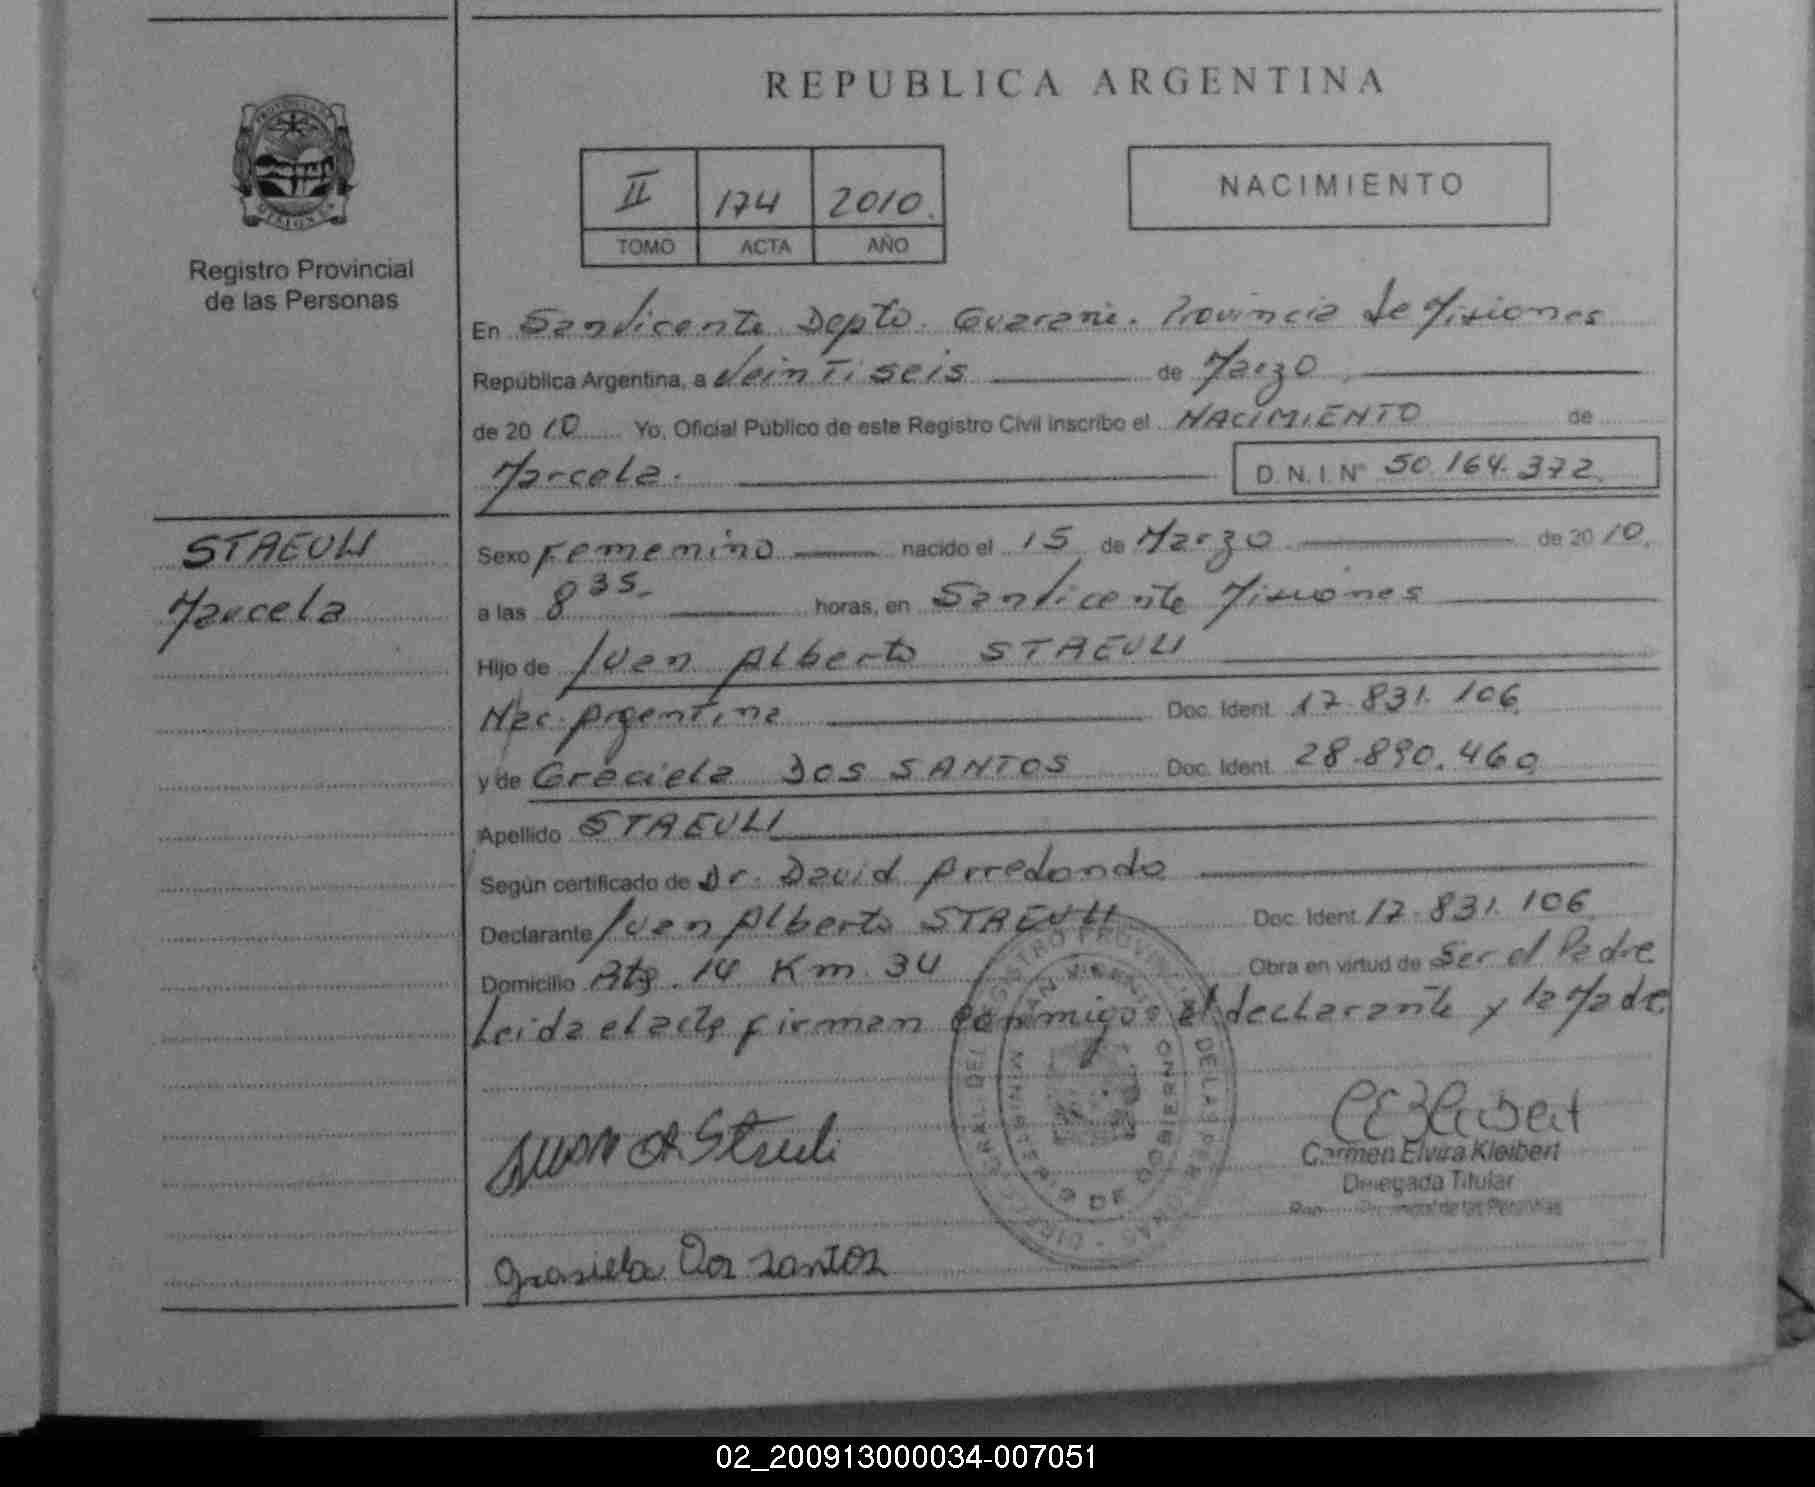 REPUBLICA ARGENTINA
II 174 2010.
TOMO ACTA AÑO
NACIMIENTO
Registro Provincial
de las Personas
En San Vicente Depto. Guarani. Provincia de Misiones
República Argentina, a Veintiseis de Marzo
de 2010 Yo, Oficial Público de este Registro Civil inscribo el NACIMIENTO de
Marcela. D.N.I. Nº 50.164.372.
STAEULI
Marcela
Sexo Femenino nacido el 15 de Marzo de 2010.
a las 8 35- horas, en San Vicente Misiones
Hijo de Juan Alberto STAEULI
Nac. Argentina Doc. Ident. 17.831.106
y de Graciela DOS SANTOS Doc. Ident. 28.890.460
Apellido STAEULI
Según certificado de Dr. David Arredondo
Declarante Juan Alberto STAEULI Doc. Ident. 17.831.106
Domicilio Rta. 14 Km 34 Obra en virtud de Ser el Padre
Leida el acta firman conmigo el declarante y la Madre
JUAN A Staeuli
Carmen Elvira Kleibert
Delegada Titular
Provincial de las Personas
Grasiela Dos santos
02_200913000034-007051